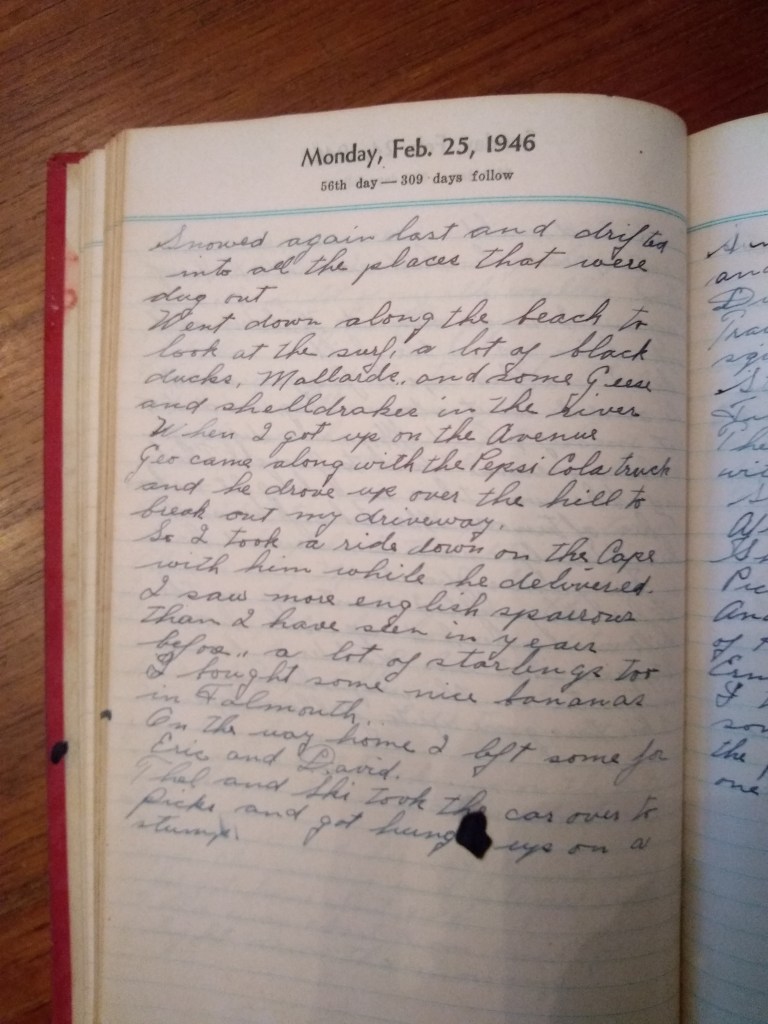 Monday, Feb. 25, 1946
56th day — 309 days follow
Snowed again last and drifted
into all the places that were
dug out
Went down along the beach to
look at the surf, a lot of black
ducks, Mallards, and some Geese
and shelldrakes in the river
When I got up on the Avenue
Geo came along with the Pepsi Cola truck
and he drove up over the hill to
break out my driveway.
So I took a ride down on the Cape
with him while he delivered.
I saw more english sparrows
than I have seen in years
before, a lot of starlings too
I bought some nice bananas
in Falmouth.
On the way home I left some for
Eric and David.
Thel and Ski took the car over to
Picks and got hung up on a
stump.
and